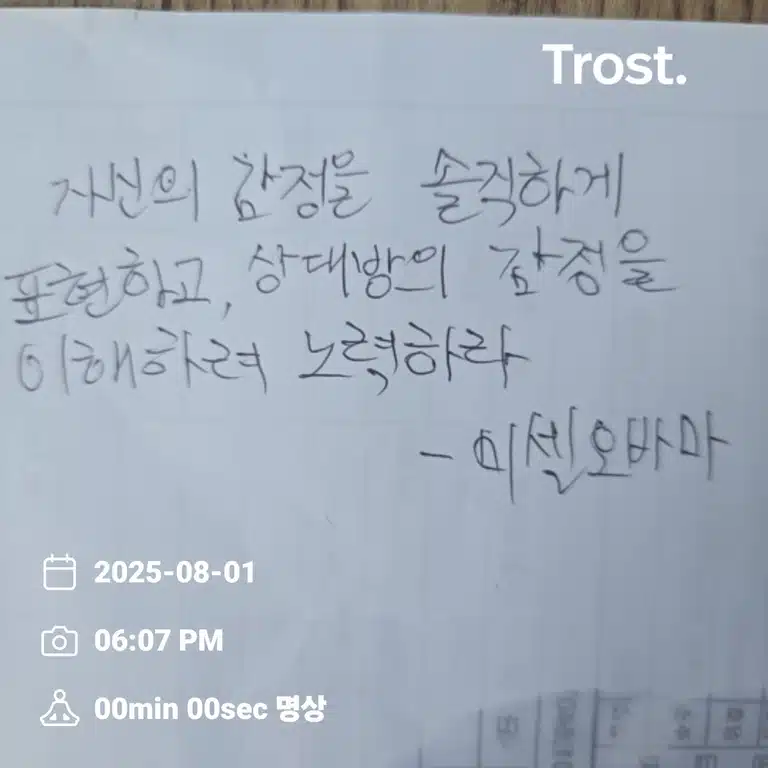 Trost.
자신의 감정을 솔직하게
표현하고, 상대방의 감정을
이해하려 노력하라
- 미셸오바마
2025-08-01
06:07 PM
00min 00sec 명상